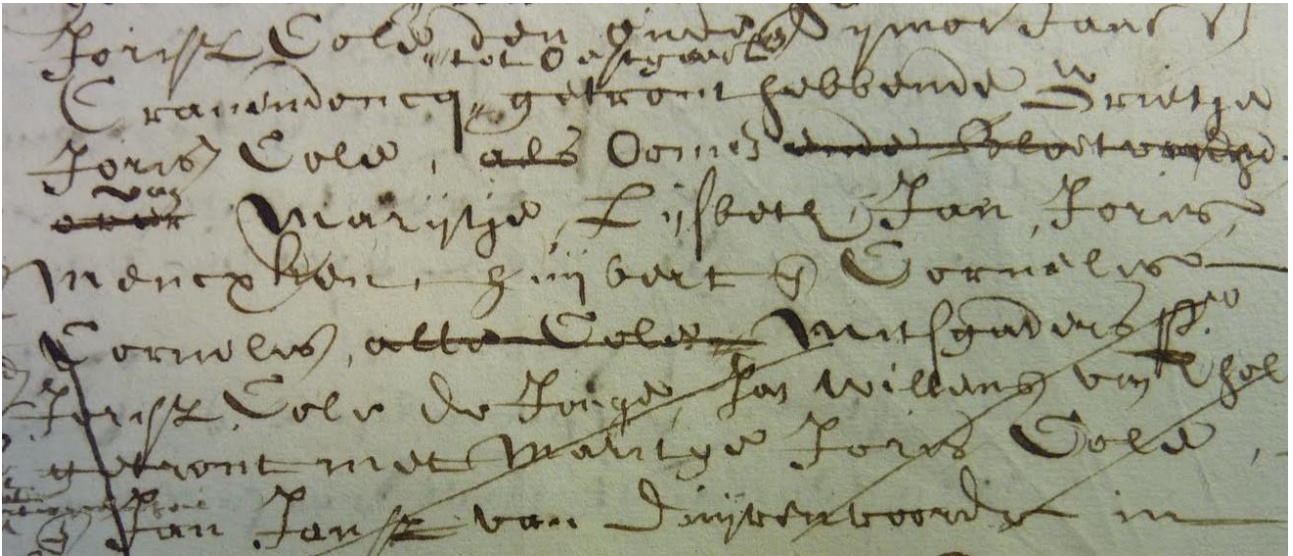 Jorisz Cole den ouden Sijmon Jans
tot Oestgeest
Cranendoncq getrout hebbende Grietje
Joris Cole, als Oomes ende Bloetvoochd
van
over Marijtje, Lijsbeth, Jan, Joris,
Mencxken, Huijbert Cornelis
Cornelis, alle Cole Mitsgaders
Jorisz Cole de Jonge, Jan Willems
getrout met Maritge Joris Cole,
Jan Jansz van Duijvenvoorde in